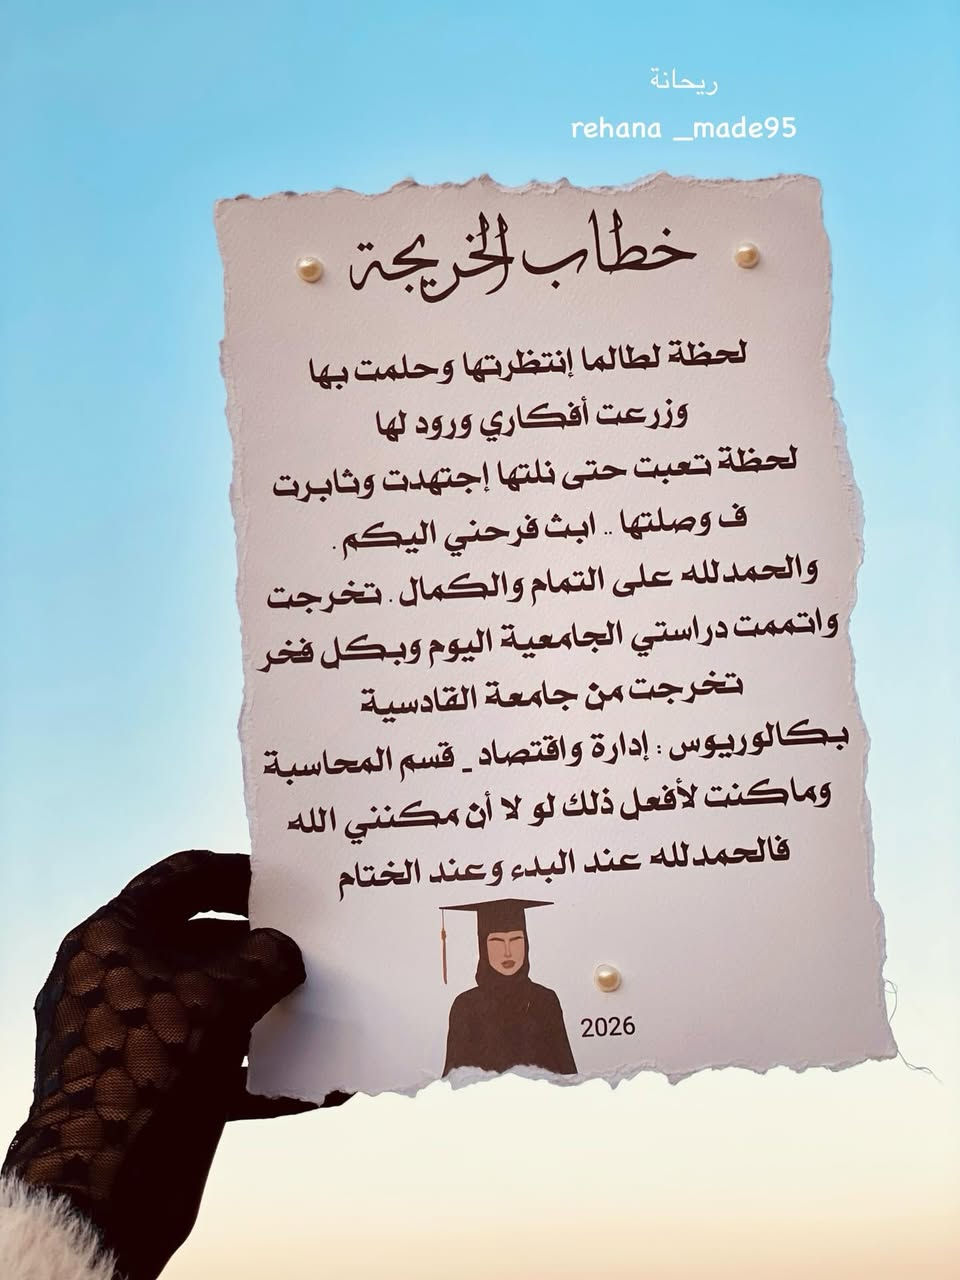 ريحانة
rehana _made95
خطاب الخريجة
لحظة لطالما إنتظرتها وحلمت بها
وزرعت أفكاري ورود لها
لحظة تعبت حتى نلتها إجتهدت وثابرت
ف وصلتها .. ابث فرحني اليكم .
والحمدلله على التمام والكمال . تخرجت
واتممت دراستي الجامعية اليوم وبكل فخر
تخرجت من جامعة القادسية
بكالوريوس : إدارة واقتصاد _ قسم المحاسبة
وماكنت لأفعل ذلك لو لا أن مكنني الله
فالحمدلله عند البدء وعند الختام
2026